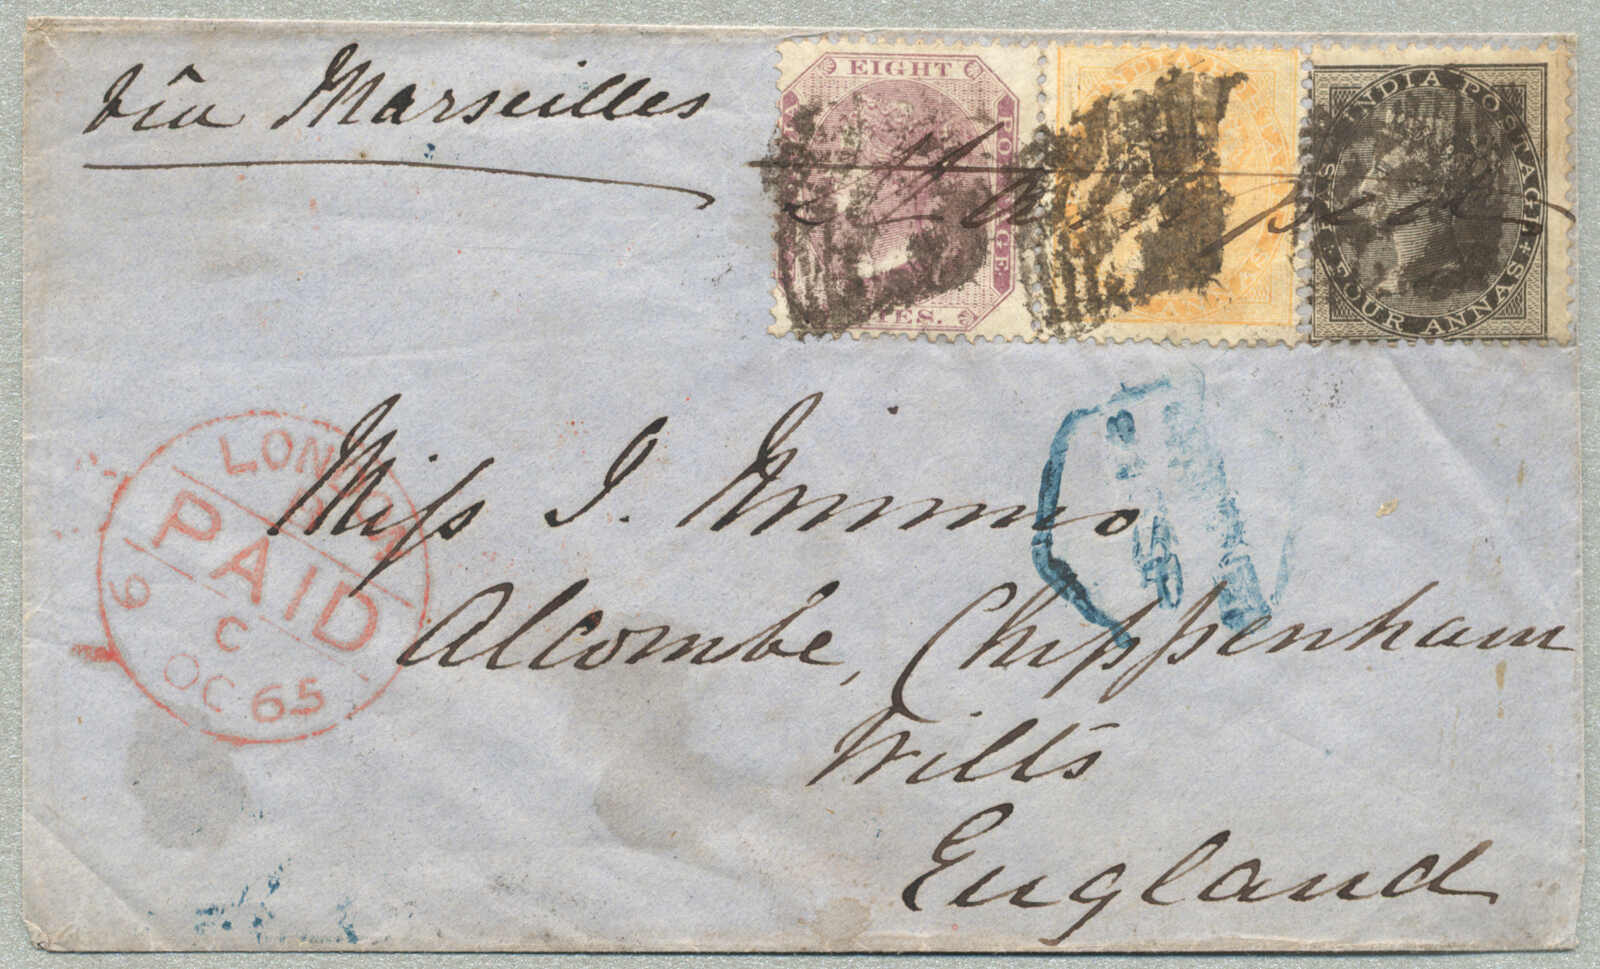 via Marseilles
EIGHT
POSTAGE.
Stamped
INDIA POSTAGE
FOUR ANNAS
LONDON
PAID
6
C
OC 65
Miss I.
Alcombe, Chippenham
Wilts
England